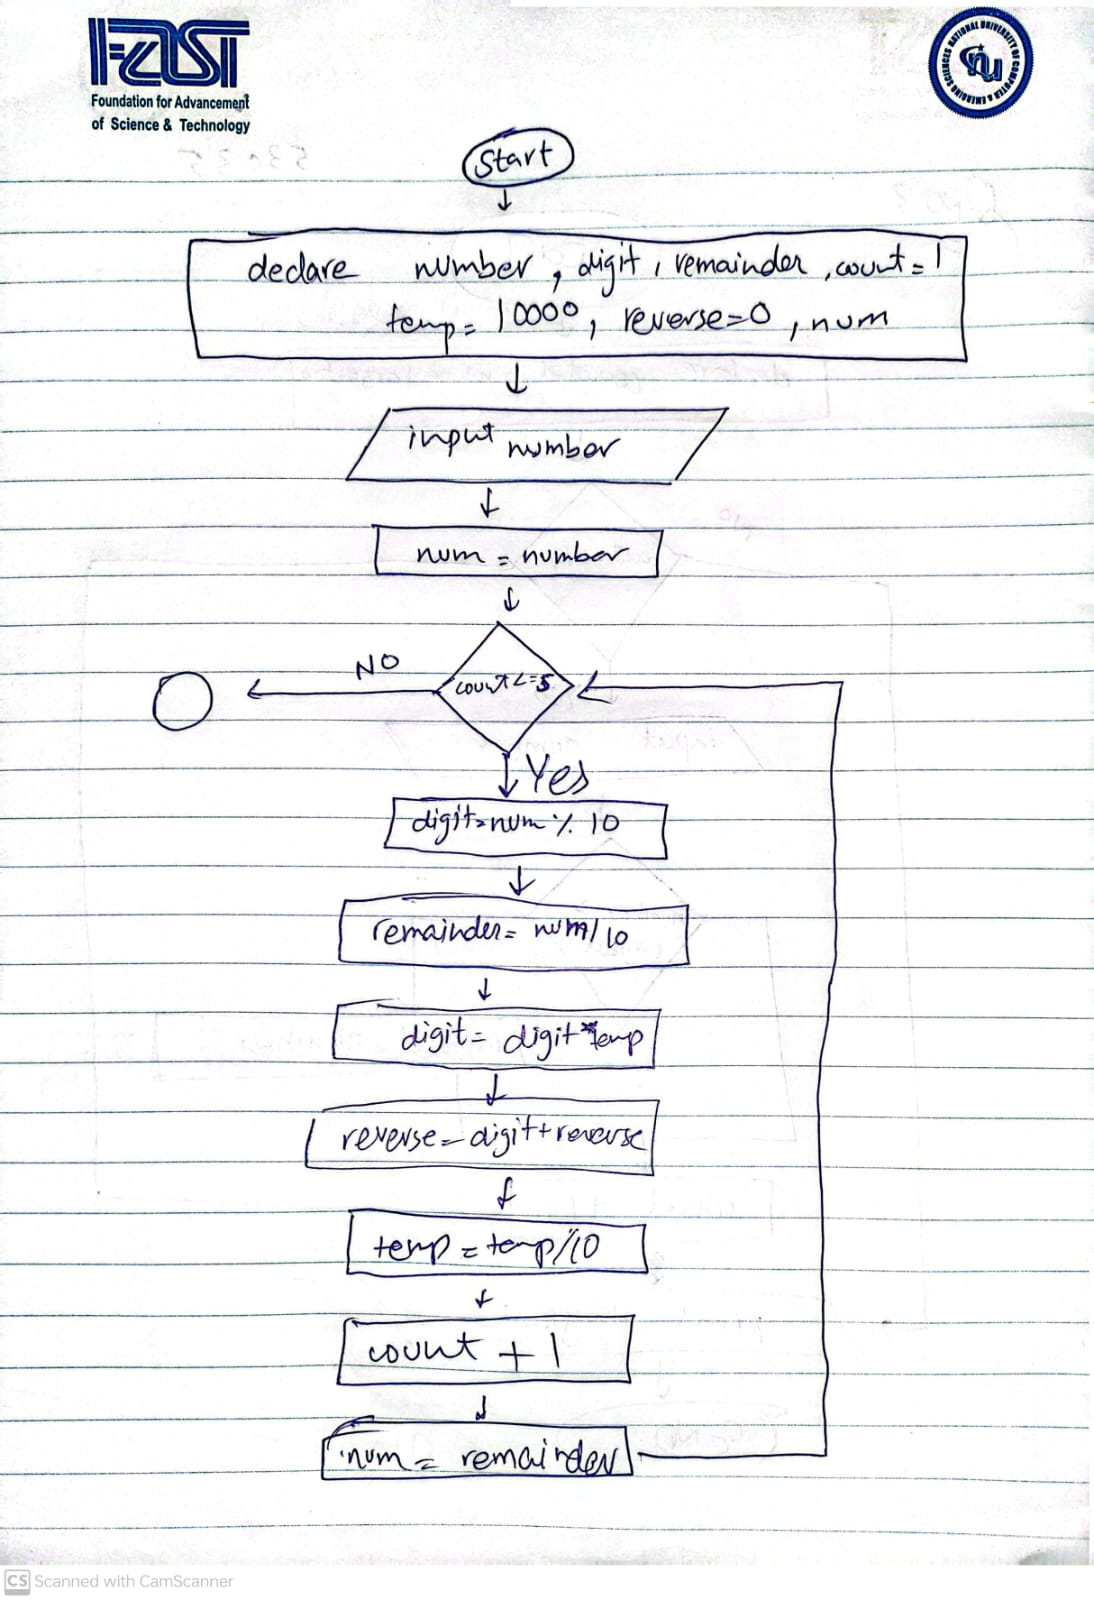 FAST
Foundation for Advancement
of Science & Technology
NATIONAL UNIVERSITY OF COMPUTER & EMERGING SCIENCES
nu
Start
declare number, digit, remainder, count=1
temp= 10000, reverse=0, num
input number
num = number
count<=5
NO
Yes
digit=num % 10
remainder= num/10
digit= digit*temp
reverse=digit+reverse
temp = temp/10
count + 1
num = remainder
CS Scanned with CamScanner